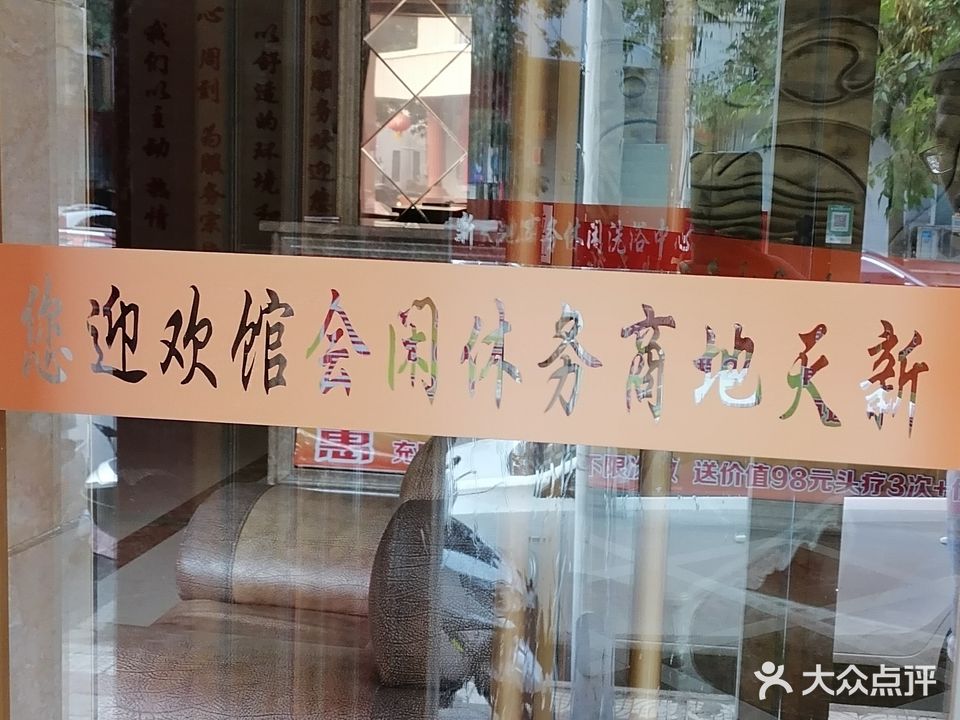 新天地商务休闲会馆欢迎您
心 周到 为服务宗
我们以主动 热情
以舒适的环境和
心 服务欢迎您
休闲洗浴中心
惠
充
不限次 送价值98元头疗3次+
大众点评